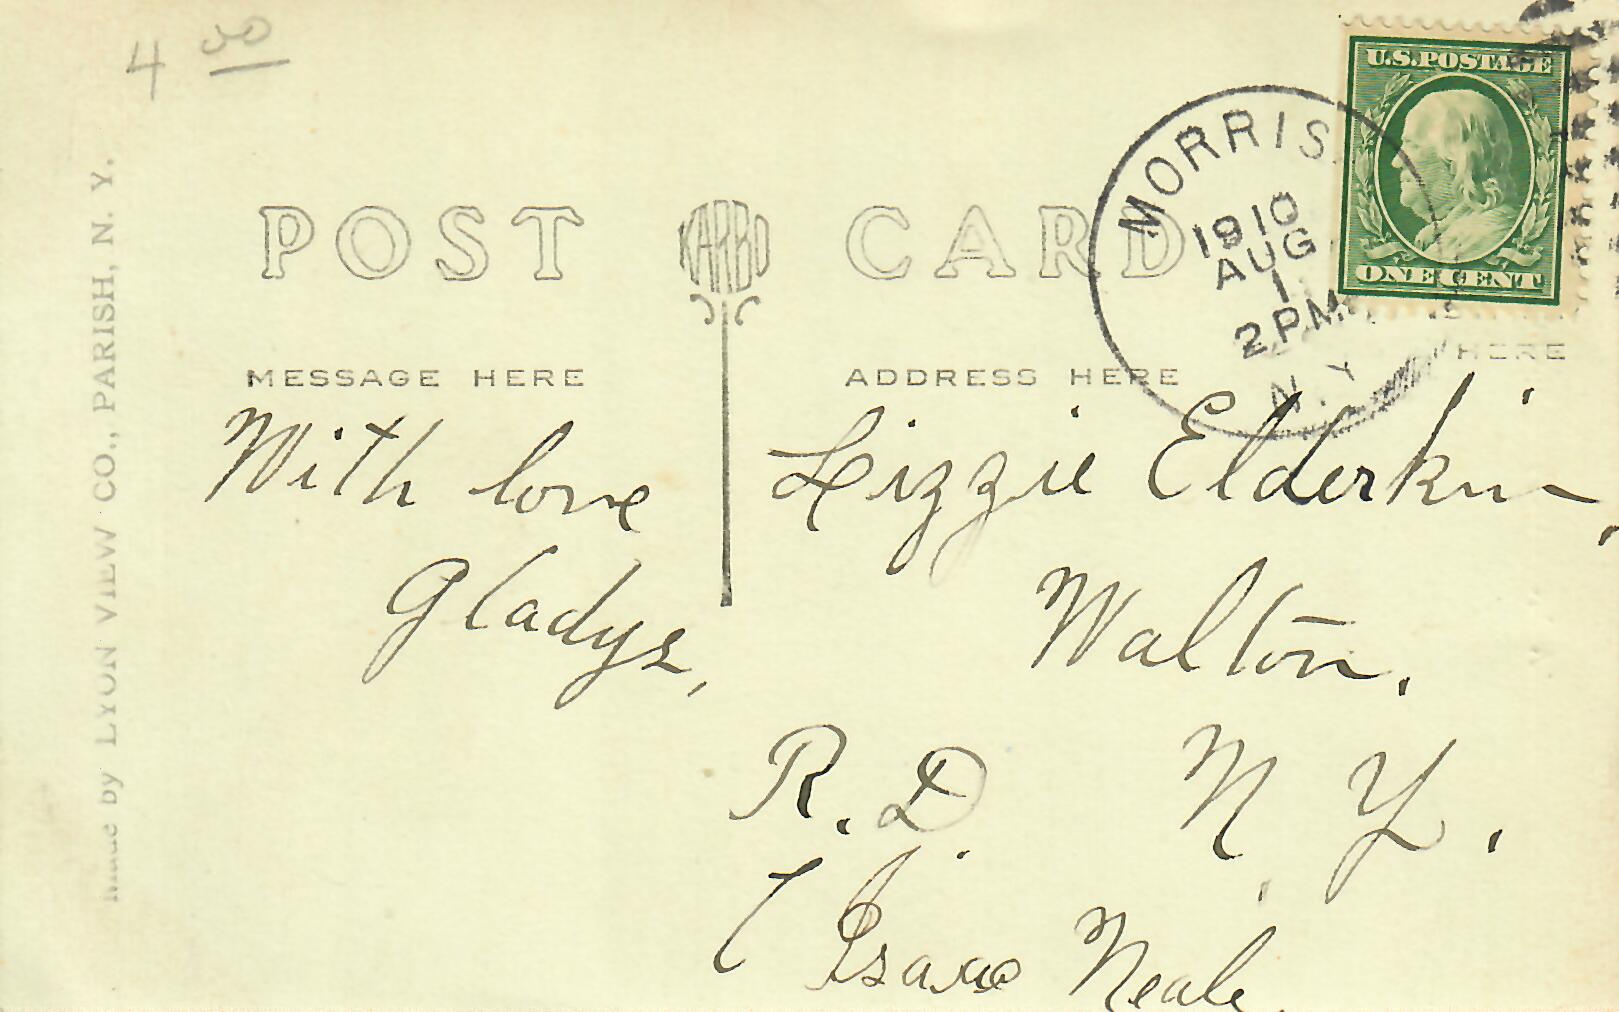 4 00
U.S.POSTAGE
ONE CENT
MORRIS
1910
AUG
1
2 PM
N.Y.
POST CARD
KARBO
MESSAGE HERE
ADDRESS HERE
HERE
With love
Gladys,
Lizzie Elderkin,
Walton.
R. D. N Y.
Isaac Neale
Made by LYON VIEW CO., PARISH, N. Y.